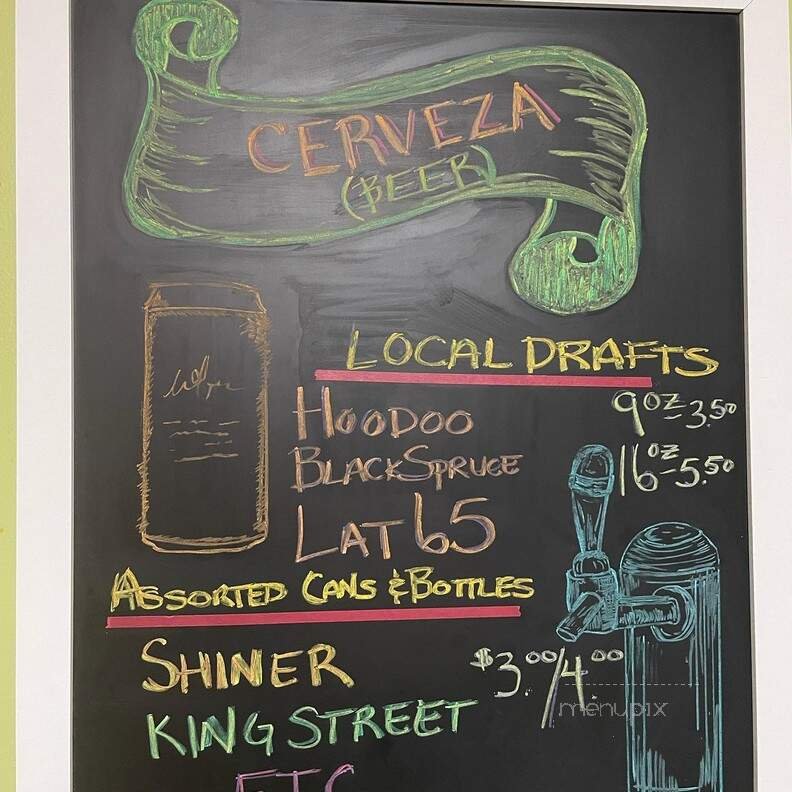 CERVEZA
(BEER)
LOCAL DRAFTS
HOODOO
9oz-3.50
BLACK SPRUCE
16oz-5.50
LAT 65
ASSORTED CANS & BOTTLES
SHINER
$3.00/4.00
KING STREET
menupix
ETC